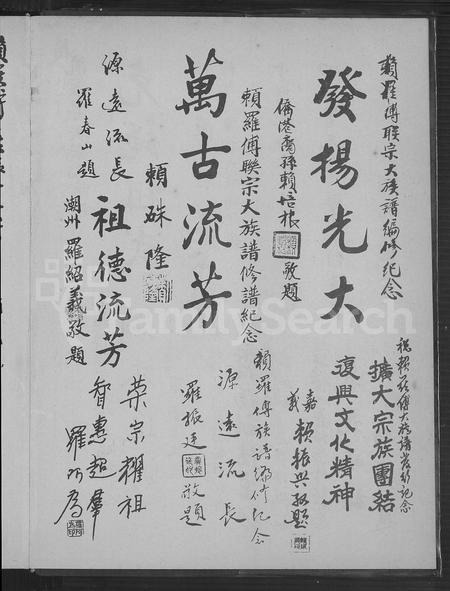 賴羅傅聯宗大族譜編修紀念
發揚光大
僑港裔孫賴培根敬題
賴羅傅聯宗大族譜修譜紀念
萬古流芳
賴硃隆
源遠流長
羅春山題
祖德流芳
潮州羅紹羲敬題
祝賴羅傅大族譜發行記念
擴大宗族團結
復興文化精神
嘉義賴振興敬題
賴羅傅族譜編修紀念
源遠流長
羅振廷敬題
榮宗耀祖
智惠超群
羅
FamilySearch